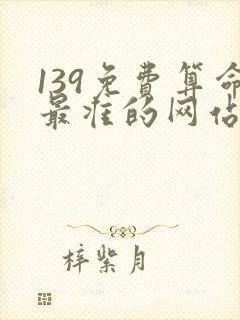 139免费算命
最准的网佔
梓紫月